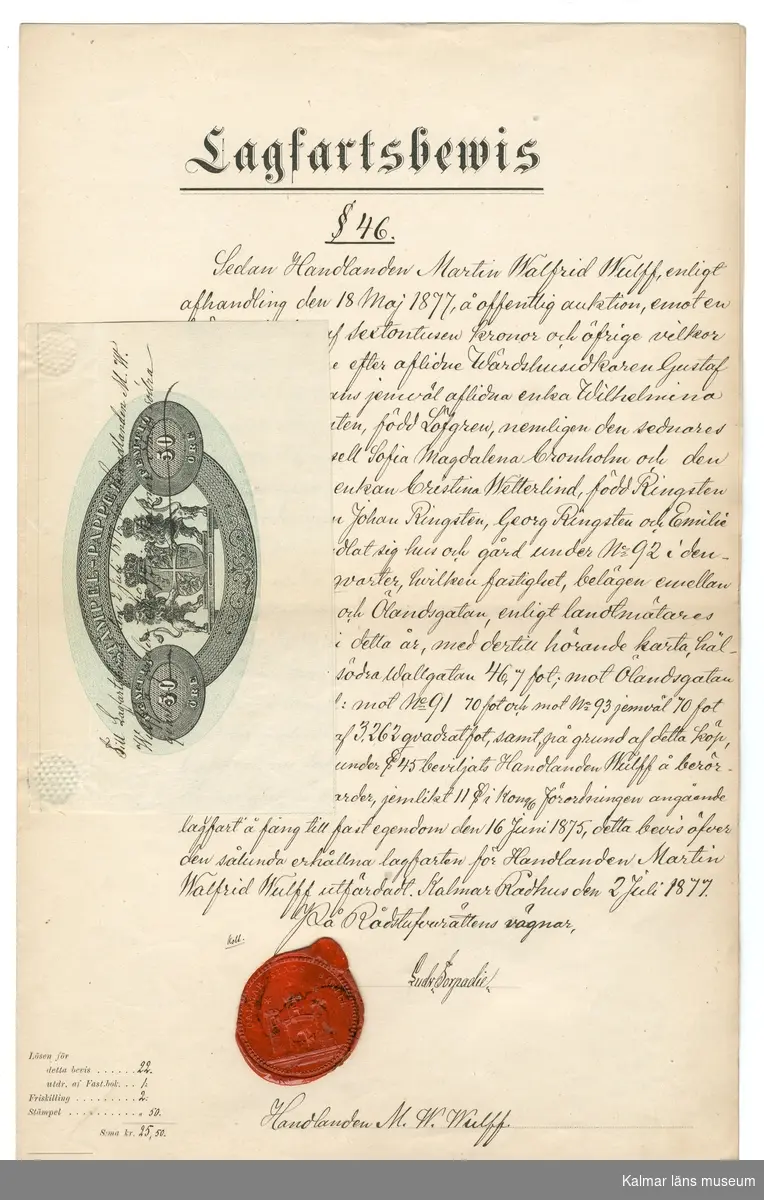 Lagfartsbewis
§ 46.
Sedan Handlanden Martin Walfrid Wulff, enligt
afhandling den 18 Maj 1877, å offentlig auktion, emot en
af sextontusen kronor och öfrige vilkor
efter aflidne Wärdshusidkaren Gustaf
jemväl aflidna enka Wilhelmina
född Löfgren, nemligen den sednares
Sofia Magdalena Cronholm och den
enkan Cristina Wetterlind, född Ringsten
Johan Ringsten, Georg Ringsten och Emilie
sig hus och gård under No 92 i den
qvarter, hvilken fastighet, belägen emellan
och Ölandsgatan, enligt landtmätares
i detta år, med dertill hörande karta, häl-
södra Wallgatan 46,7 fot; mot Ölandsgatan
: mot No 91 70 fot och mot No 93 jemväl 70 fot
af 3,262 qvadratfot, samt, på grund af detta köp,
under § 45 beviljats Handlanden Wulff å berör-
jemlikt 11 § i Kong. förordningen angående
lagfart å fång till fast egendom den 16 Juni 1875, detta bevis öfver
den sålunda erhållna lagfarten för Handlanden Martin
Walfrid Wulff utfärdadt. Kalmar Rådhus den 2 Juli 1877.
På Rådstufvurättens vägnar,
STÄMPEL-PAPPER
50 ÖRE
50 ÖRE
Till Lagfartsbevis Handlanden M. W.
Lösen för
detta bevis . . . . . . 22.
utdr. af Fast.bok. . . 1.
Friskilling . . . . . . . . . 2.
Stämpel . . „ . . . . . „ 50.
S:ma kr. 25,50.
Handlanden M. W. Wulff.
Kalmar läns museum